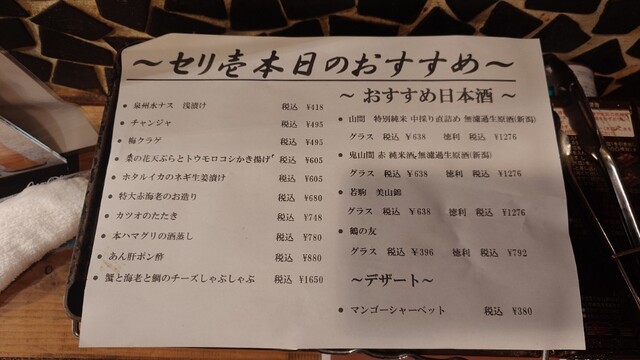 ～セリ壱本日のおすすめ～
泉州水ナス 浅漬け 税込 ¥418
チャンジャ 税込 ¥495
梅クラゲ 税込 ¥495
菜の花天ぷらとトウモロコシかき揚げ 税込 ¥605
ホタルイカのネギ生姜漬け 税込 ¥605
特大赤海老のお造り 税込 ¥680
カツオのたたき 税込 ¥748
本ハマグリの酒蒸し 税込 ¥780
あん肝ポン酢 税込 ¥880
蟹と海老と鯛のチーズしゃぶしゃぶ 税込 ¥1650
～ おすすめ日本酒 ～
山間 特別純米 中採り直詰め 無濾過生原酒(新潟)
グラス 税込 ¥638 徳利 税込 ¥1276
鬼山間 赤 純米酒 無濾過生原酒(新潟)
グラス 税込 ¥638 徳利 税込 ¥1276
若駒 美山錦
グラス 税込 ¥638 徳利 税込 ¥1276
鶴の友
グラス 税込 ¥396 徳利 税込 ¥792
～デザート～
マンゴーシャーベット 税込 ¥380